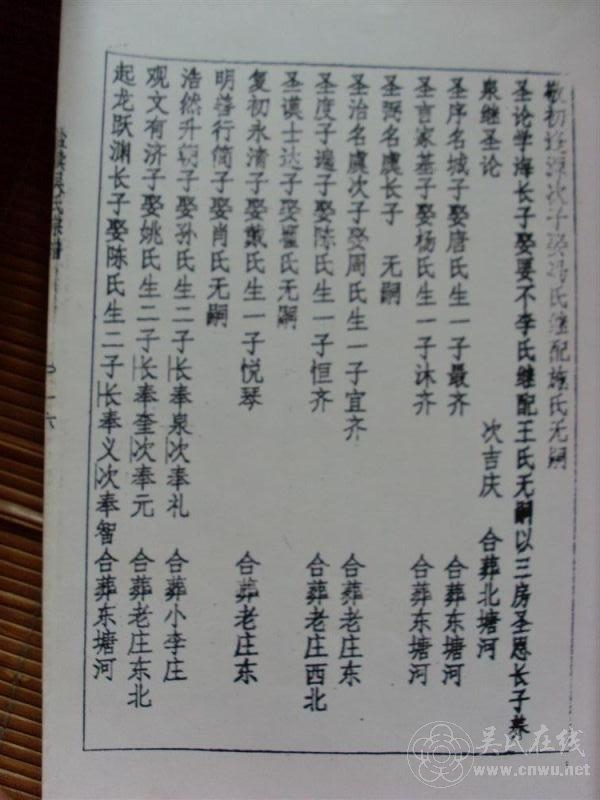 敬初 次子娶冯氏继配施氏无嗣
圣论学海长子娶要不李氏继配王氏无嗣以三房圣恩长子养
泉继圣论 次吉庆 合葬北塘河
圣序名城子娶唐氏生一子最齐 合葬东塘河
圣言家基子娶杨氏生一子沐齐 合葬东塘河
圣弼名虞长子 无嗣
圣治名虞次子娶周氏生一子宜齐 合葬老庄东
圣度子遑子娶陈氏生一子恒齐 合葬老庄西北
圣谟士达子娶翟氏无嗣
复初永清子娶戴氏生一子悦琴 合葬老庄东
明善行简子娶肖氏无嗣
浩然升朝子娶孙氏生二子长奉泉次奉礼 合葬小李庄
观文有济子娶姚氏生二子长奉奎次奉元 合葬老庄东北
起龙跃渊长子娶陈氏生二子长奉义次奉智 合葬东塘河
吴氏宗谱
一六
吴氏在线
www.cnwu.net